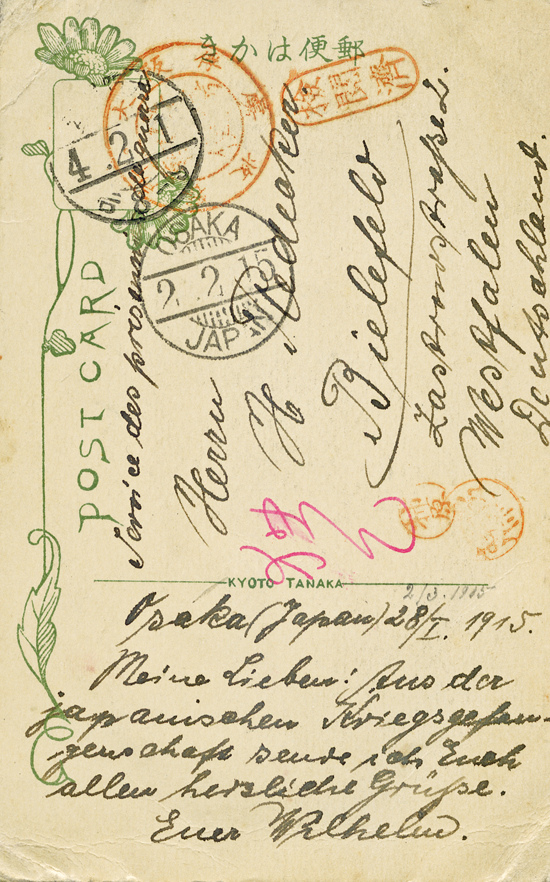 きかは便郵
POST CARD
4.2.1
OSAKA
2.2.15
JAPAN
檢閲濟
Service des prisonniers de guerre
Herrn
H
Bielefeld
Zastrowstraße 2.
Westfalen
Deutschland.
KYOTO TANAKA
2/3.1915
Osaka (Japan) 28/I. 1915.
Meine Lieben! Aus der
japanischen Kriegsgefan-
genschaft sende ich Euch
allen herzliche Grüße.
Euer Wilhelm.